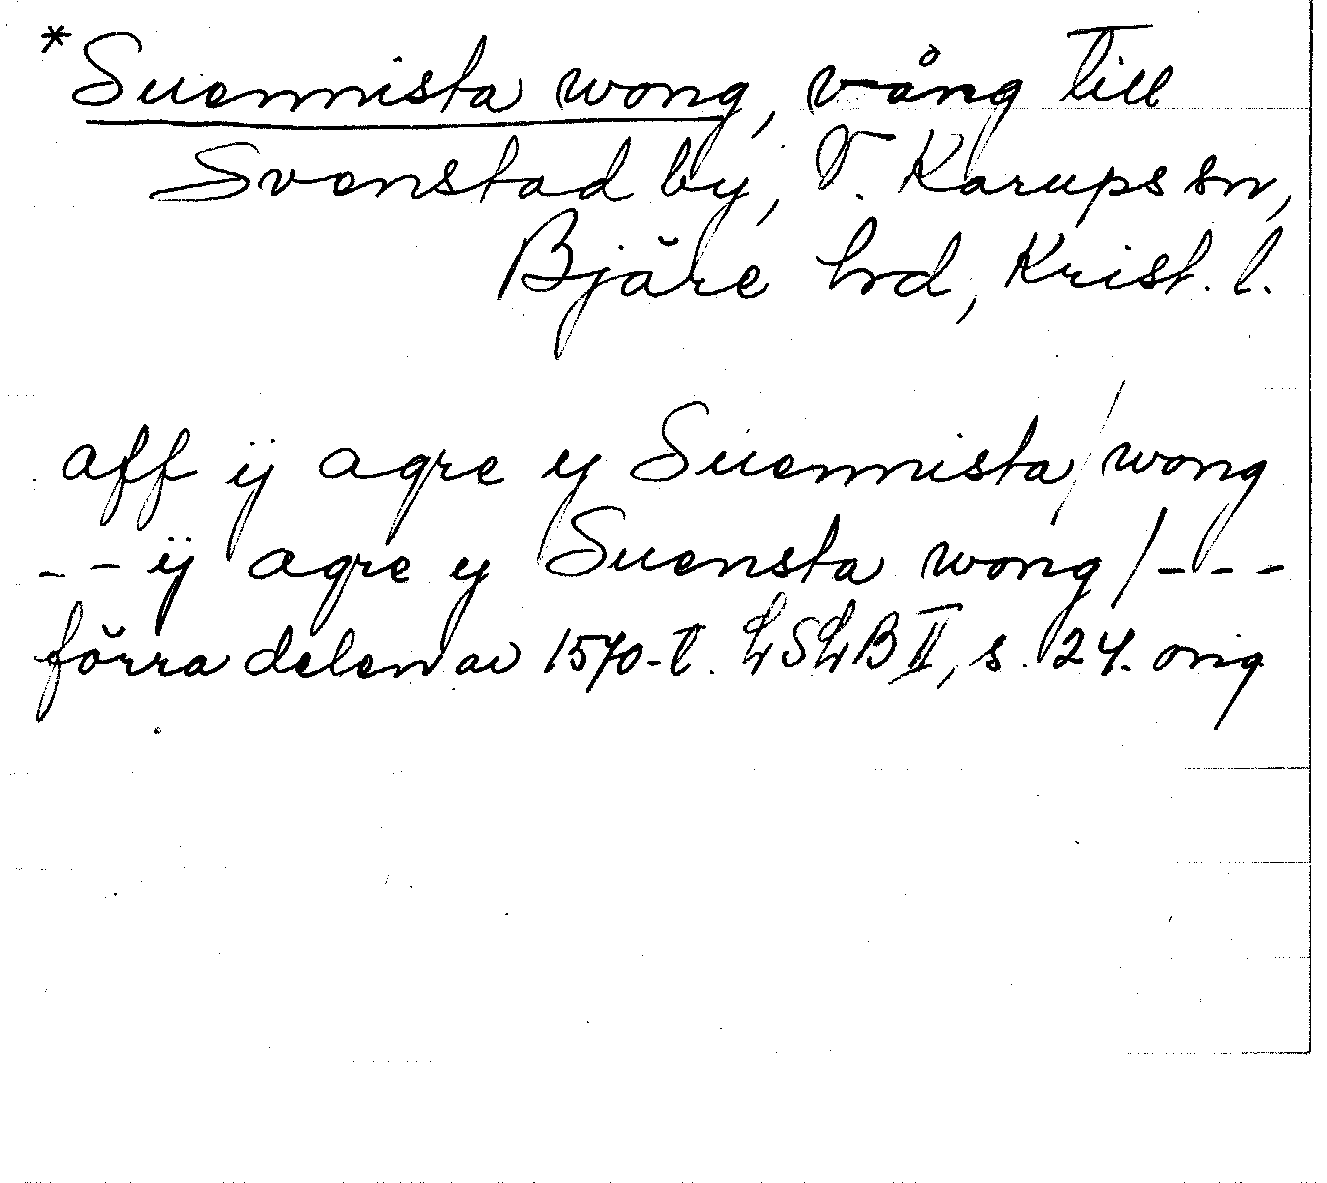 *Suennista wong, vång till
Svenstad by, V. Karups sn,
Bjäre hd, Krist. l.
aff ij agre y Suennista / wong
-- ij agre y Suensta wong / ---
förra delen av 1570-t. LSLB II, s. 24. orig